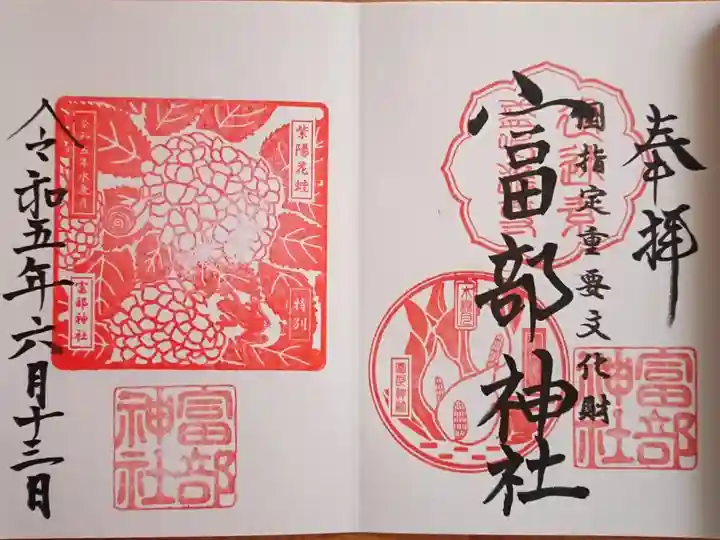 奉拝
国指定重要文化財
富部神社
富部
神社
紫陽花蛙
特別
令和五年水無月
富部神社
富部
神社
令和五年六月十三日